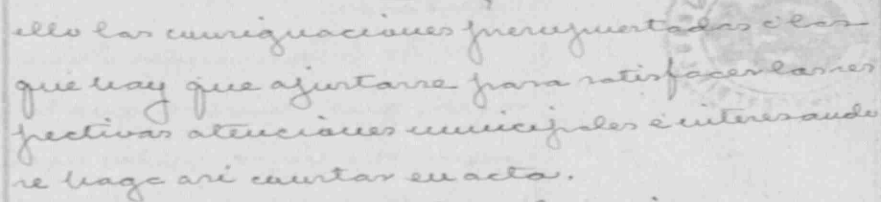 ello las consignaciones presupuestadas á las
que hay que ajustarse para satisfacer las res
pectivas atenciones municipales é interesando
se haga asi constar en acta.